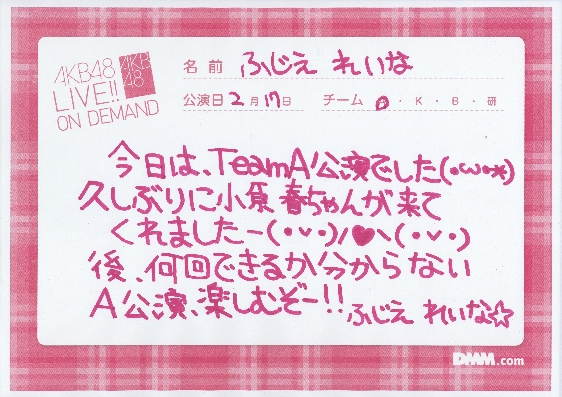 AKB48
LIVE!!
ON DEMAND
AKB
48
名前 ふじえ れいな
公演日 2月17日 チーム A・K・B・研
今日は、TeamA公演でした(・ω・*)
久しぶりに小原春ちゃんが来て
くれましたー(・v・)/♥\(・v・)
後、何回できるか分からない
A公演、楽しむぞー!!
ふじえ れいな☆
DMM.com